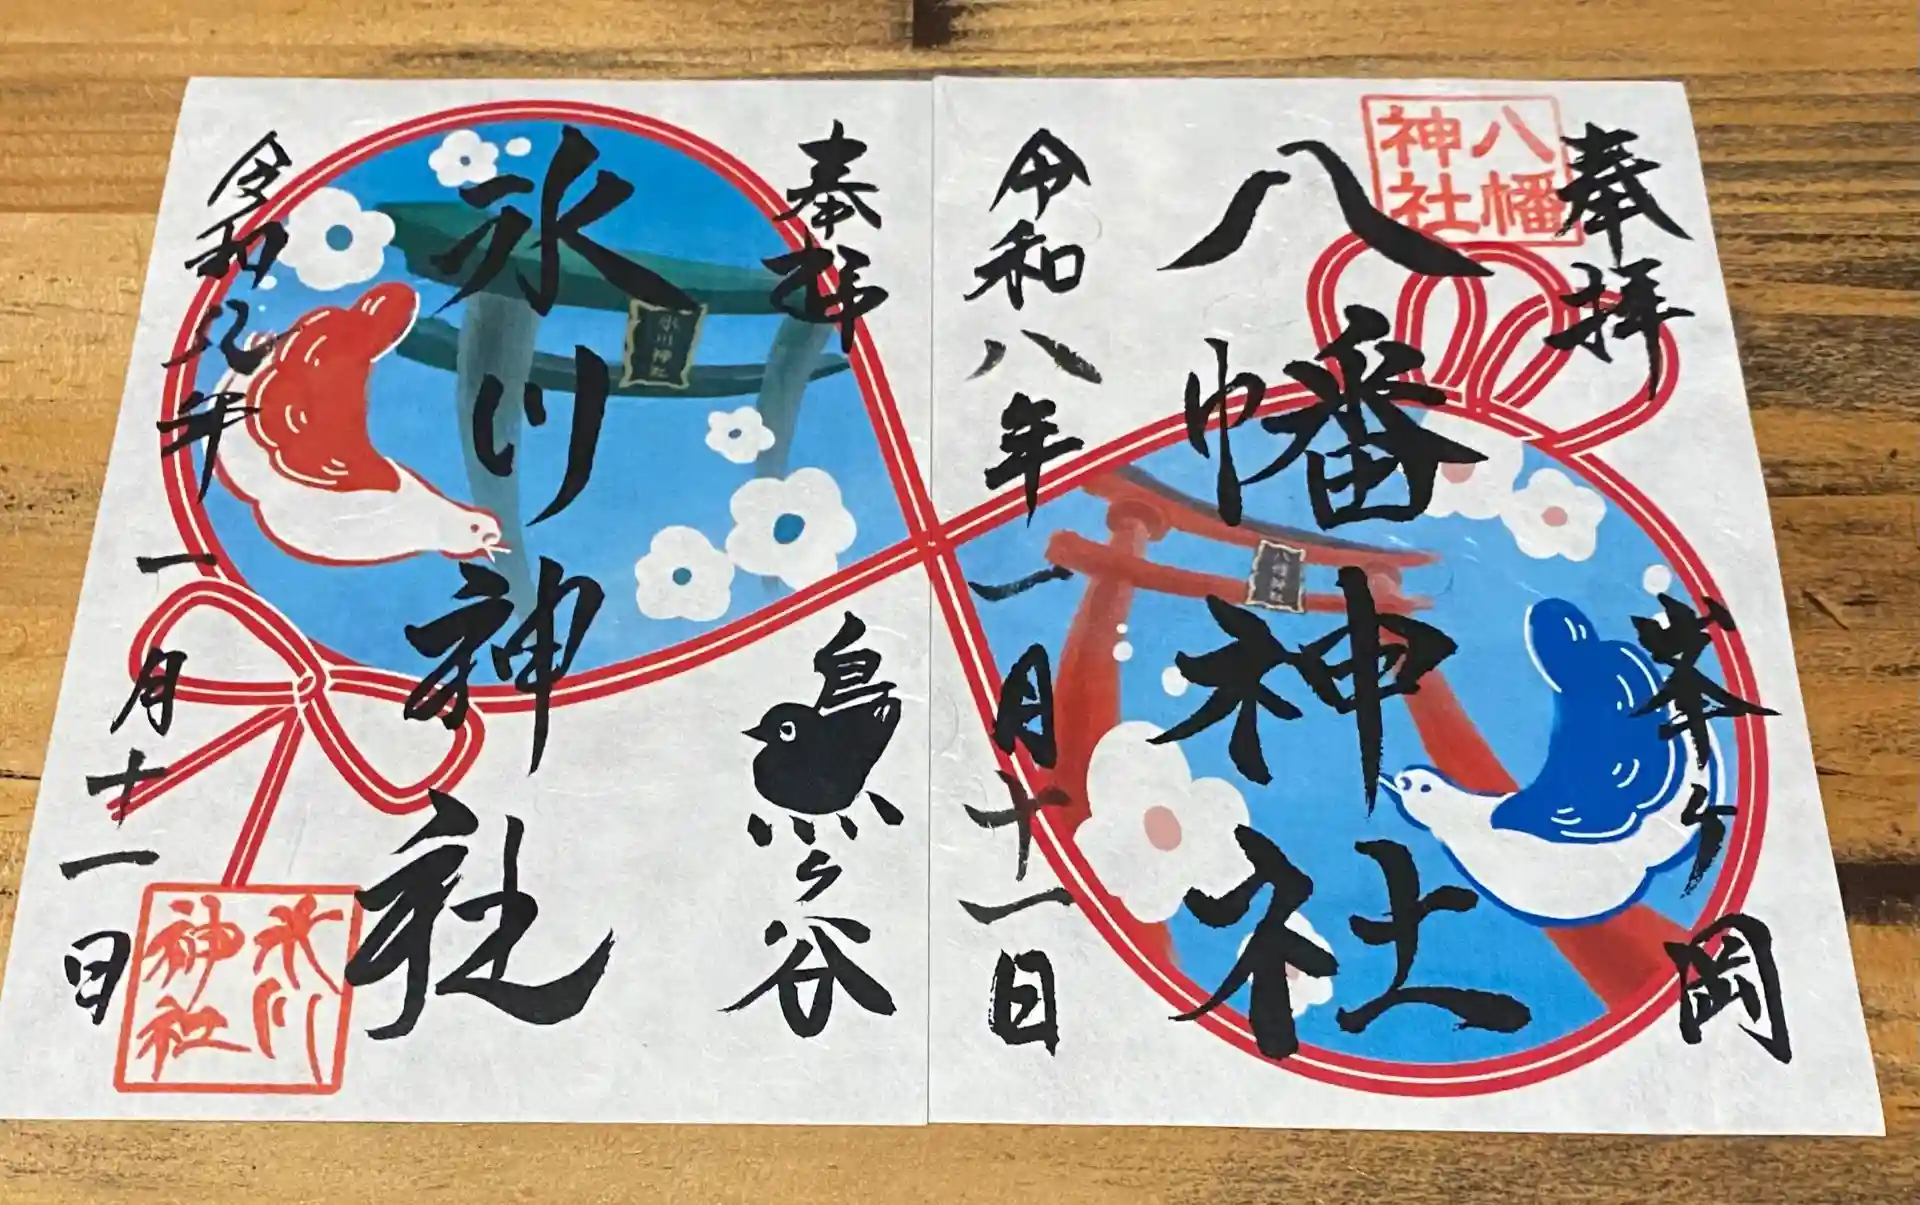 奉拝
八幡神社
峯ヶ岡
八幡神社
八幡神社
令和八年
一月十一日
奉拝
鳥ヶ谷
氷川神社
氷川神社
令和八年
一月十一日
氷川神社